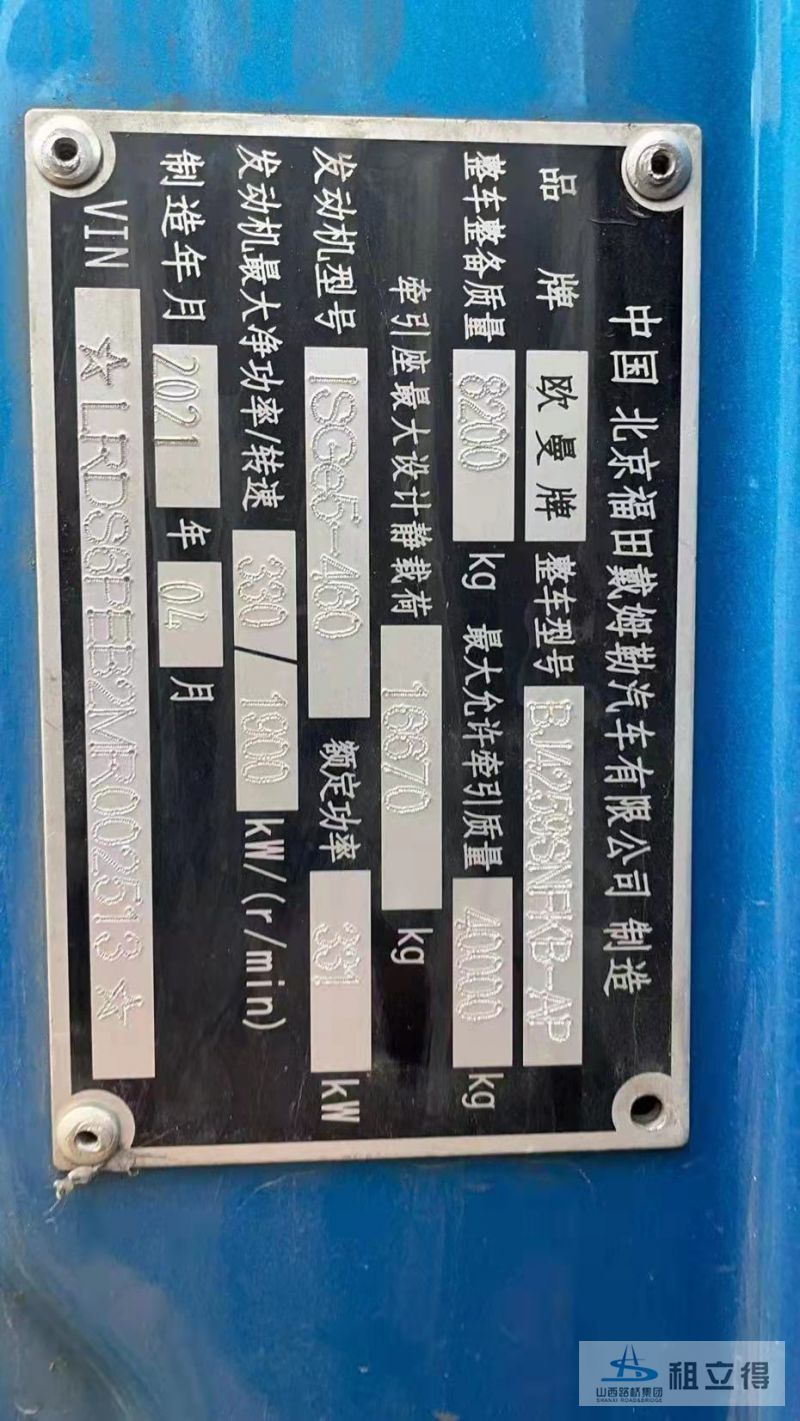 中国 北京福田戴姆勒汽车有限公司 制造
品牌 欧曼牌 整车型号 BJ4259SNFKB-AP
整车整备质量 8200 kg 最大允许牵引质量 40000 kg
牵引座最大设计静载荷 16670 kg
发动机型号 ISGe5-460 额定功率 331 kW
发动机最大净功率/转速 330/1900 kW/(r/min)
制造年月 2021 年 04 月
VIN ☆LRDS6PEB2MR002513☆
山西路桥集团 租立得
SHANXI ROAD&BRIDGE